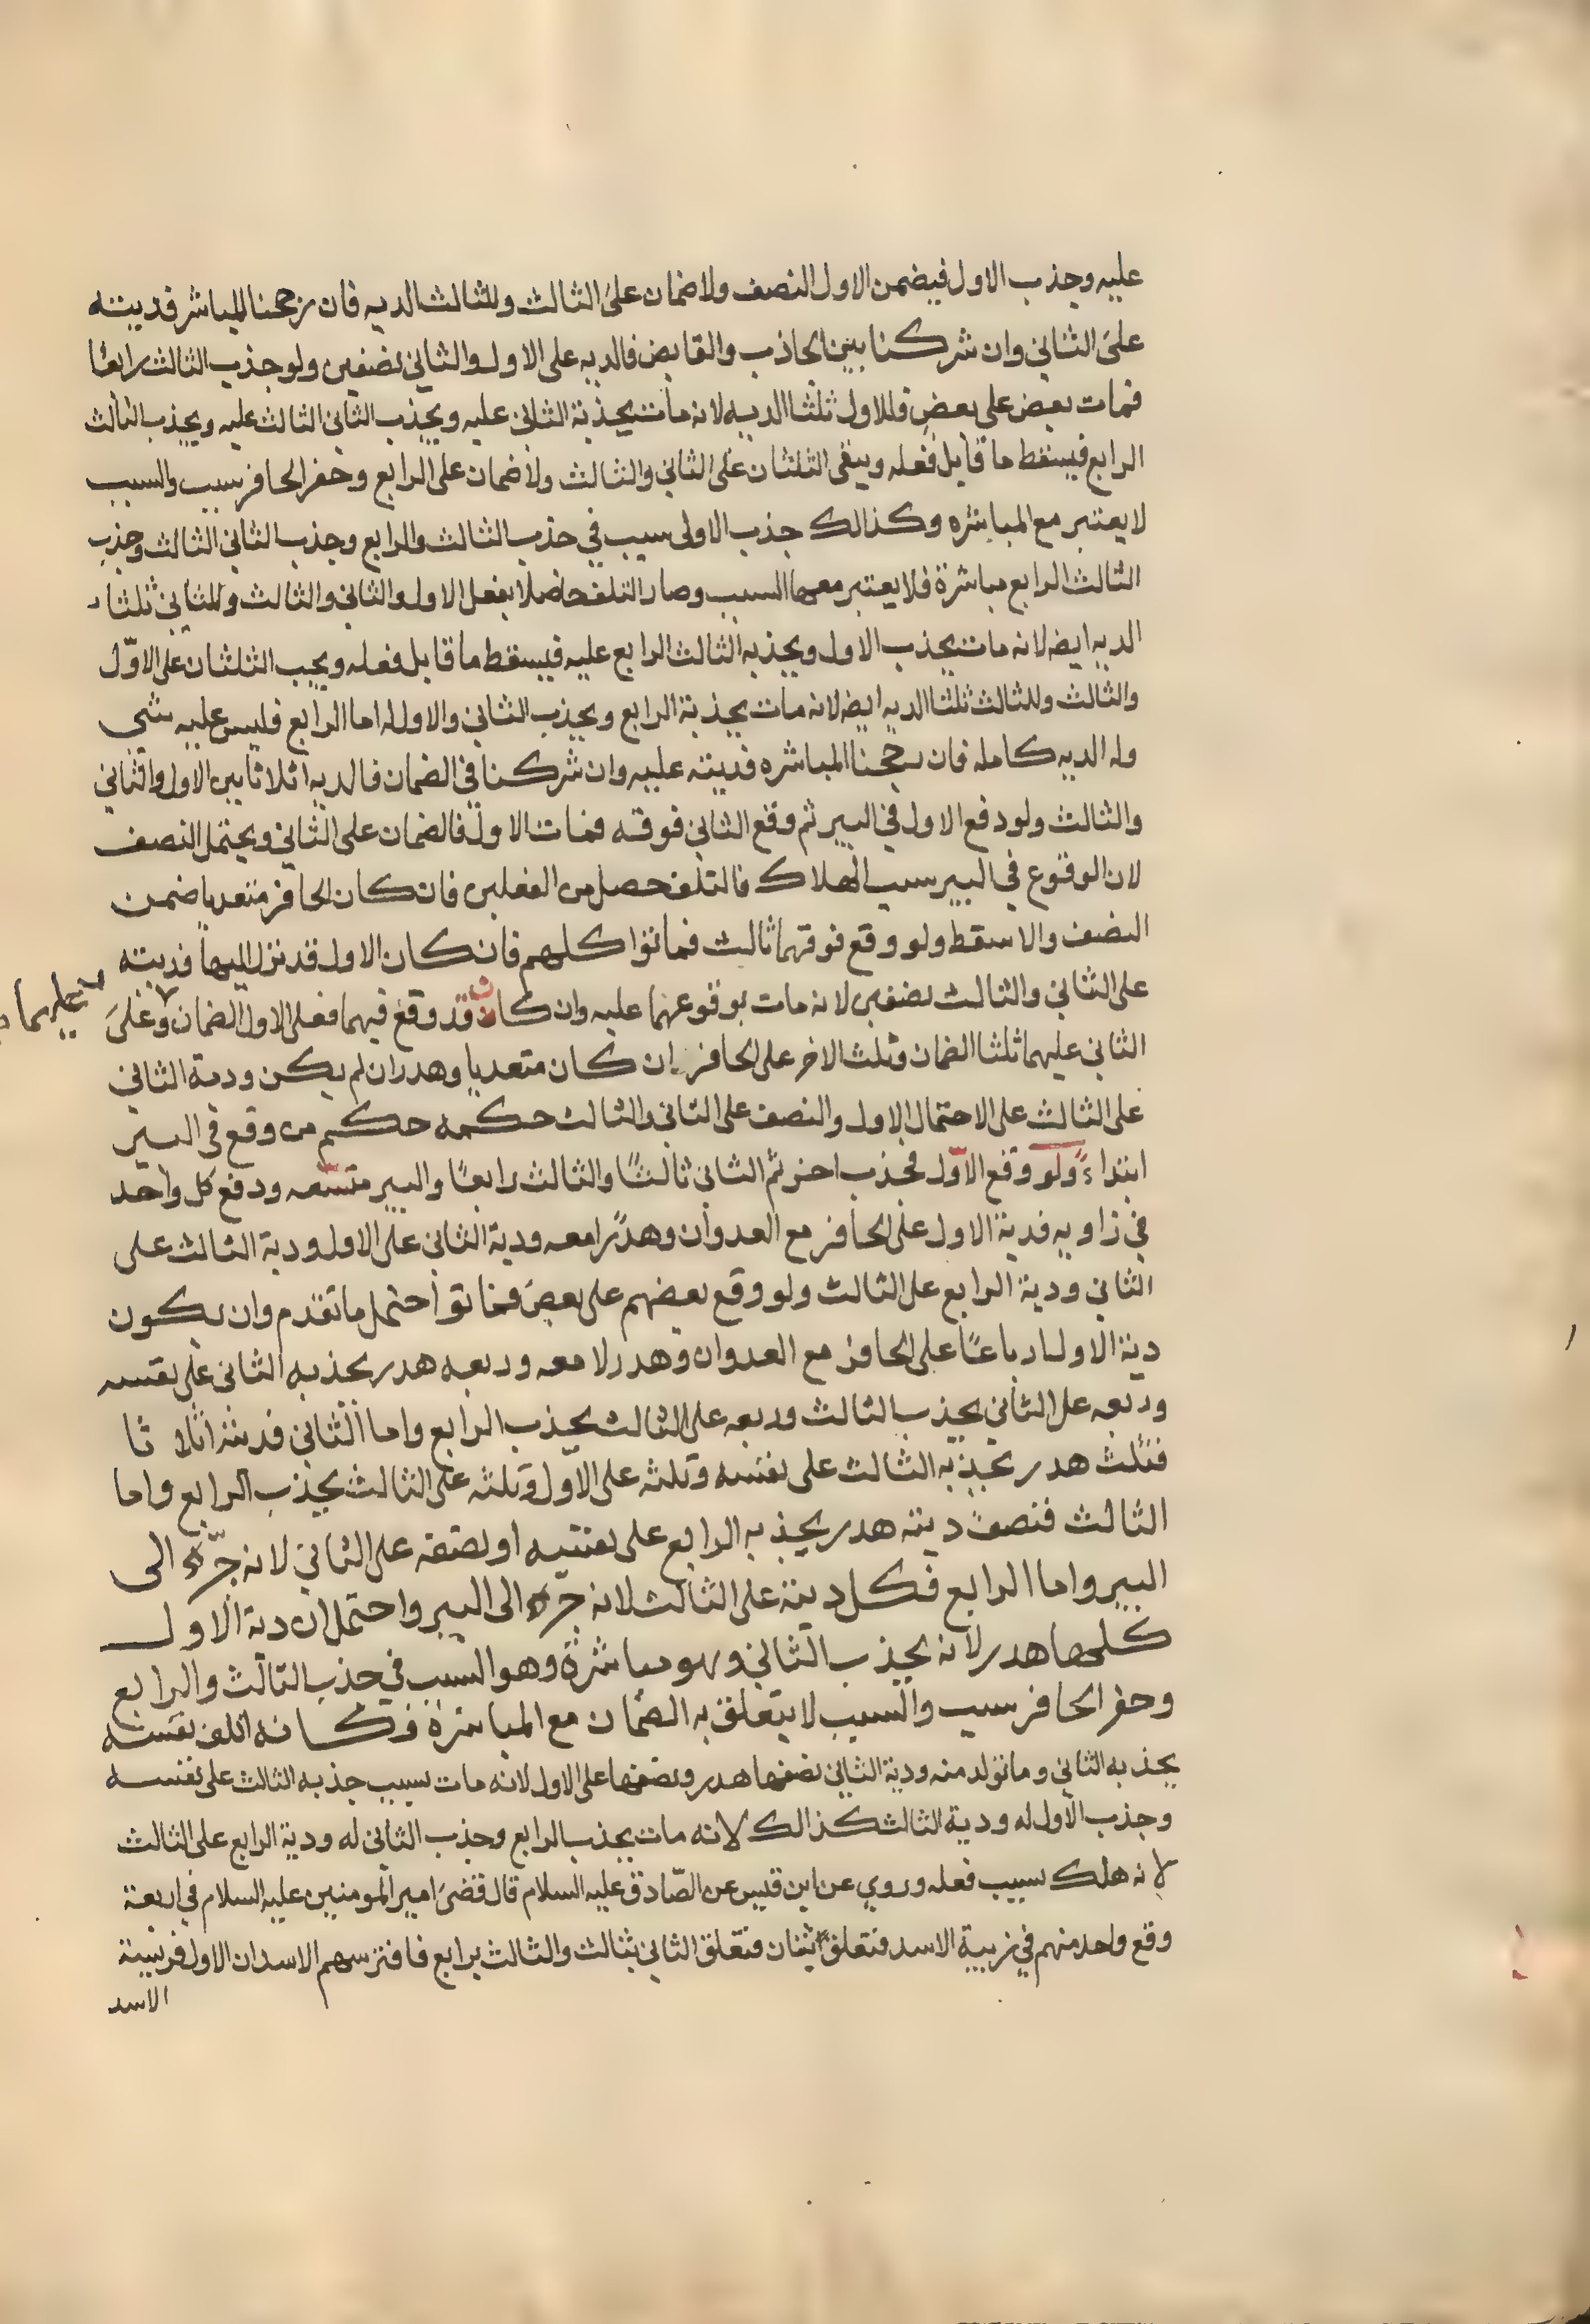 عليه وجذب الاول فيضمن الاول النصف ولا ضمان على الثالث وللثالث الديه فان رجحنا المباشر فديته
على الثاني وان شركنا بين الجاذب والقابض فالديه على الاول والثاني نصفين ولو جذب الثالث رابعا
فمات بعض على بعض فللاول ثلثا الديه لانه مات بجذبة الثاني عليه وبجذب الثاني الثالث عليه وبجذب الثالث
الرابع فيسقط ما قابل فعله ويبقى الثلثان على الثاني والثالث ولا ضمان على الرابع وحفر الحافر سبب والسبب
لا يعتبر مع المباشره وكذالك جذب الاولى سبب في جذب الثالث والرابع وجذب الثاني الثالث وجذب
الثالث الرابع مباشرة فلا يعتبر معها السبب وصار التلف حاصلا بفعل الاول والثاني والثالث وللثاني ثلثا
الديه ايضه لانه مات بجذب الاول وبجذبه الثالث الرابع عليه فيسقط ما قابل فعله ويجب الثلثان على الاوّل
والثالث وللثالث ثلثا الديه ايضه لانه مات بجذبة الرابع وبجذب الثاني والاول له اما الرابع فليس عليه شي
وله الديه كامله فان رجحنا المباشره فديته عليه وان شركنا في الضمان فالديه اثلاثا بين الاول والثاني
والثالث ولو دفع الاول في البير ثم وقع الثاني فوقه فمات الاول فالضمان على الثاني ويحتمل النصف
لان الوقوع في البير سبب الهلاك فالتلف حصل من الفعلين فان كان الحافر متعديا ضمن
النصف والا سقط ولو وقع فوقهما ثالث فماتوا كلهم فان كان الاول قد نزل اليها فديته
على الثاني والثالث نصفين لانه مات بوقوعهما عليه وان كان قد وقع فيهما فعلى الاول الضمان وعلى
عليهما
الثاني عليهما ثلثا الضمان وثلث الاخر على الحافر ان كان متعديا وهدر ان لم يكن ودية الثاني
على الثالث على الاحتمال الاول والنصف على الثاني والثالث حكمه حكم من وقع في البير
ابتداءً ولو وقع الاوّل فجذب اخر ثم الثاني ثالثًا والثالث رابعًا والبير متسّعه ودفع كل واحد
في زاويه فدية الاول على الحافر مع العدوان وهدرًا معه ودية الثاني على الاول ودية الثالث على
الثاني ودية الرابع على الثالث ولو وقع بعضهم على بعض فماتوا احتمل ما تقدم وان يكون
دية الاول ارباعًا على الحافر مع العدوان وهدر لا معه وربعه هدر بجذبه الثاني على نفسه
وربعه على الثاني بجذب الثالث وربعه على الثالث بجذب الرابع واما الثاني فديته اثلاثا
فثلث هدر بجذبه الثالث على نفسه وثلثه على الاوّل وثلثه على الثالث بجذب الرابع واما
الثالث فنصف ديته هدر بجذبه الرابع على نفسه او نصفه على الثاني لانه جرّه الى
البير واما الرابع فكل ديته على الثالث لانه جرّه الى البير واحتمل ان دية الاول
كلها هدر لانه بجذب الثاني وهو مباشرة وهو السبب في جذب الثالث والرابع
وحفر الحافر سبب والسبب لا يتعلق به الضمان مع المباشرة فكانه اتلف نفسه
بجذبه الثاني وما تولد منه ودية الثاني نصفها هدر ونصفها على الاول لانه مات بسبب جذبه الثالث على نفسه
وجذب الاول له ودية الثالث كذالك لانه مات بجذب الرابع وجذب الثاني له ودية الرابع على الثالث
لانه هلك بسبب فعله وروي عن ابن قيس عن الصّادق عليه السلام قال قضى امير المومنين عليه السلام في اربعة
وقع واحد منهم في زبية الاسد فتعلق اثنان فتعلق الثاني بثالث والثالث برابع فافترسهم الاسد ان الاول فريسة
الاسد